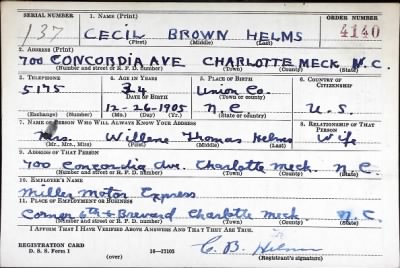 SERIAL NUMBER 1. NAME (Print) ORDER NUMBER
137 CECIL BROWN HELMS 4140
(First) (Middle) (Last)
2. ADDRESS (Print)
700 CONCORDIA AVE CHARLOTTE MECK N.C.
(Number and street or R. F. D. number) (Town) (County) (State)
3. TELEPHONE 4. AGE IN YEARS 5. PLACE OF BIRTH 6. COUNTRY OF CITIZENSHIP
5175 34 Union Co.
DATE OF BIRTH (Town or county)
12-26-1905 N.C. U.S.
(Exchange) (Number) (Mo.) (Day) (Yr.) (State or country)
7. NAME OF PERSON WHO WILL ALWAYS KNOW YOUR ADDRESS 8. RELATIONSHIP OF THAT PERSON
Mrs. Willene Thomas Helms Wife
(Mr., Mrs., Miss) (First) (Middle) (Last)
9. ADDRESS OF THAT PERSON
700 Concordia Ave. Charlotte Meck. N.C.
(Number and street or R. F. D. number) (Town) (County) (State)
10. EMPLOYER'S NAME
Miller Motor Express
11. PLACE OF EMPLOYMENT OR BUSINESS
Corner 6th & Brevard Charlotte Meck. N.C.
(Number and street or R. F. D. number) (Town) (County) (State)
I AFFIRM THAT I HAVE VERIFIED ABOVE ANSWERS AND THAT THEY ARE TRUE.
REGISTRATION CARD
D. S. S. Form 1 (over) 16—17105 C. B. Helms
(Registrant's signature)